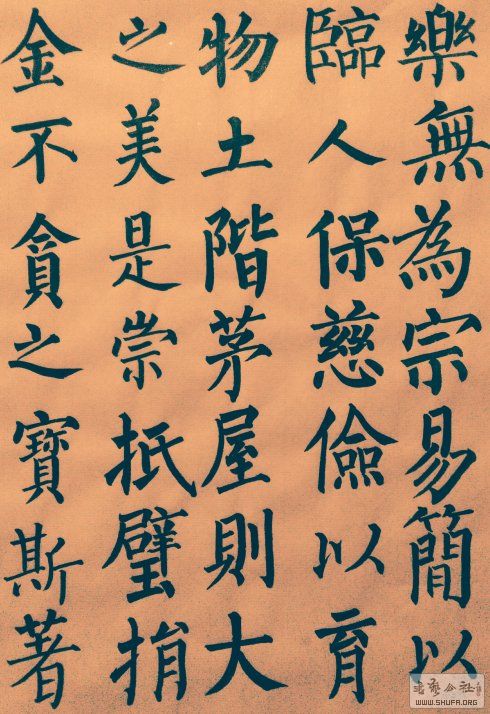 樂無為宗易簡以
臨人保慈儉以育
物土階茅屋則大
之美是崇抵璧捐
金不貪之寶斯著
書藝公社
WWW.SHUFA.ORG